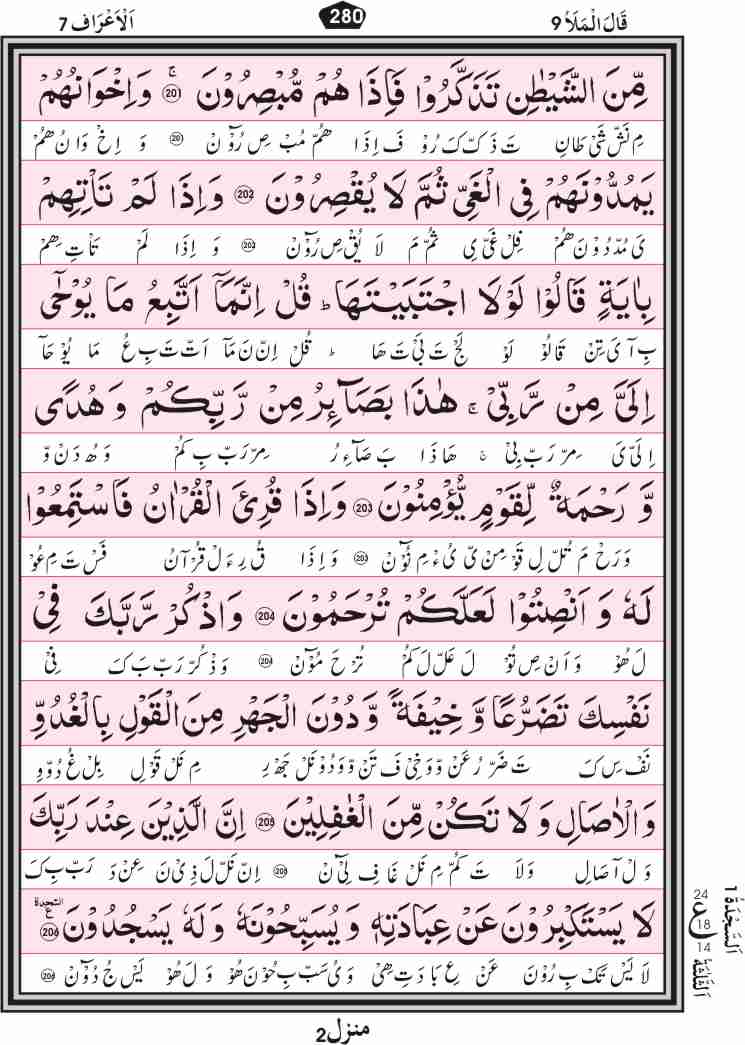 قَالَ الْمَلَاُ 9 280 اَلْاَعْرَاف 7
مِّنَ الشَّيْطٰنِ تَذَكَّرُوْا فَاِذَا هُمْ مُّبْصِرُوْنَ ۚ 201 وَاِخْوَانُهُمْ
مِ نَشّ شَىْ طَانِ تَ ذَكّ كَ رُوْ فَ اِذَا هُمّ مُبْ صِ رُوْٓنْ 201 وَ اِخْ وَانُ هُمْ
يَمُدُّوْنَهُمْ فِى الْغَىِّ ثُمَّ لَا يُقْصِرُوْنَ 202 وَاِذَا لَمْ تَاْتِهِمْ
ىَ مُدّ دُوْنَ هُمْ فِلْ غَىّ ىِ ثُمّ مَ لَا يُقْ صِ رُوْٓنْ 202 وَ اِذَا لَمْ تَاْتِ هِمْ
بِاٰيَةٍ قَالُوْا لَوْلَا اجْتَبَيْتَهَا ؕ قُلْ اِنَّمَآ اَتَّبِعُ مَا يُوْحٰٓى
بِ آىَ تِنْ قَالُوْ لَوْ لَجْ تَ بَىْ تَ هَا ؕ قُلْ اِنّ نَ مَآ اَتّ تَ بِ عُ مَا يُوْحَآ
اِلَىَّ مِنْ رَّبِّىْ ۚ هٰذَا بَصَآئِرُ مِنْ رَّبِّكُمْ وَهُدًى
اِ لَىّ ىَ مِرّ رَبّ بِىْ ۚ هَا ذَا بَ صَآءِ رُ مِرّ رَبّ بِ كُمْ وَ هُ دَنْ وّ
وَّ رَحْمَةٌ لِّقَوْمٍ يُّؤْمِنُوْنَ 203 وَاِذَا قُرِئَ الْقُرْاٰنُ فَاسْتَمِعُوْا
وَ رَحْ مَ تُلّ لِ قَوْ مِنْ ىّ ىُءْ مِ نُوْٓنْ 203 وَ اِذَا قُ رِءَلْ قُرْآنُ فَسْ تَ مِ عُوْ
لَهٗ وَ اَنْصِتُوْا لَعَلَّكُمْ تُرْحَمُوْنَ 204 وَاذْكُرْ رَّبَّكَ فِىْ
لَ هُوْ وَ اَنْ صِ تُوْ لَ عَلّ لَ كُمْ تُرْ حَ مُوْٓنْ 204 وَ ذْ كُرّ رَبّ بَ كَ فِىْ
نَفْسِكَ تَضَرُّعًا وَّ خِيْفَةً وَّ دُوْنَ الْجَهْرِ مِنَ الْقَوْلِ بِالْغُدُوِّ
نَفْ سِ كَ تَ ضَرّ رُ عَنْ وّ وَ خِىْ فَ تَنْ وّ وَ دُوْنَلْ جَهْ رِ مِ نَلْ قَوْ لِ بِلْ غُ دُوّ وِ
وَالْاٰصَالِ وَلَا تَكُنْ مِّنَ الْغٰفِلِيْنَ 205 اِنَّ الَّذِيْنَ عِنْدَ رَبِّكَ
وَ لْ آصَالِ وَلَا تَ كُمّ مِ نَلْ غَا فِ لِىْٓنْ 205 اِنّ نَلّ لَ ذِىْ نَ عِنْ دَ رَبّ بِ كَ
لَا يَسْتَكْبِرُوْنَ عَنْ عِبَادَتِهٖ وَيُسَبِّحُوْنَهٗ وَلَهٗ يَسْجُدُوْنَ 206 السجدة ع
لَا يَسْ تَكْ بِ رُوْنَ عَنْ عِ بَا دَ تِ هِىْ وَ ىُ سَبّ بِ حُوْنَ هُوْ وَ لَ هُوْ يَسْ جُ دُوْٓنْ 206
اَلسَّجْدَةُ ١
24
ع 18
14
اَلثَّلٰثَةُ
منزل 2